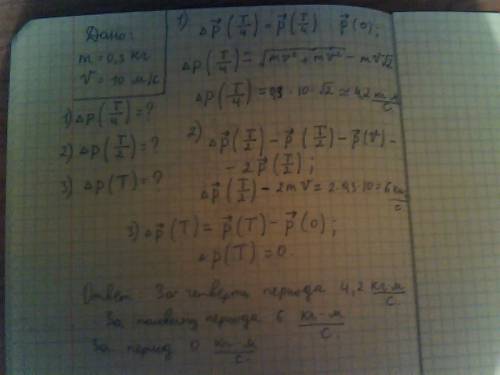 Дано:
m = 0,3 кг
v = 10 м/с
1) Δp(T/4) = ?
2) Δp(T/2) = ?
3) Δp(T) = ?
1) Δp⃗(T/4) = p⃗(T/4) p⃗(0);
Δp(T/4) = √(mv² + mv²) = mv√2
Δp(T/4) = 0,3 · 10 · √2 ≈ 4,2 кг·м/с
2) Δp⃗(T/2) = p⃗(T/2) - p⃗(0) -
- 2p⃗(T/2);
Δp⃗(T/2) - 2mv = 2 · 0,3 · 10 = 6 кг/с
3) Δp⃗(T) = p⃗(T) - p⃗(0);
Δp(T) = 0.
Ответ За четверть периода 4,2 кг·м/с.
За половину периода 6 кг·м/с.
За период 0 кг·м/с.